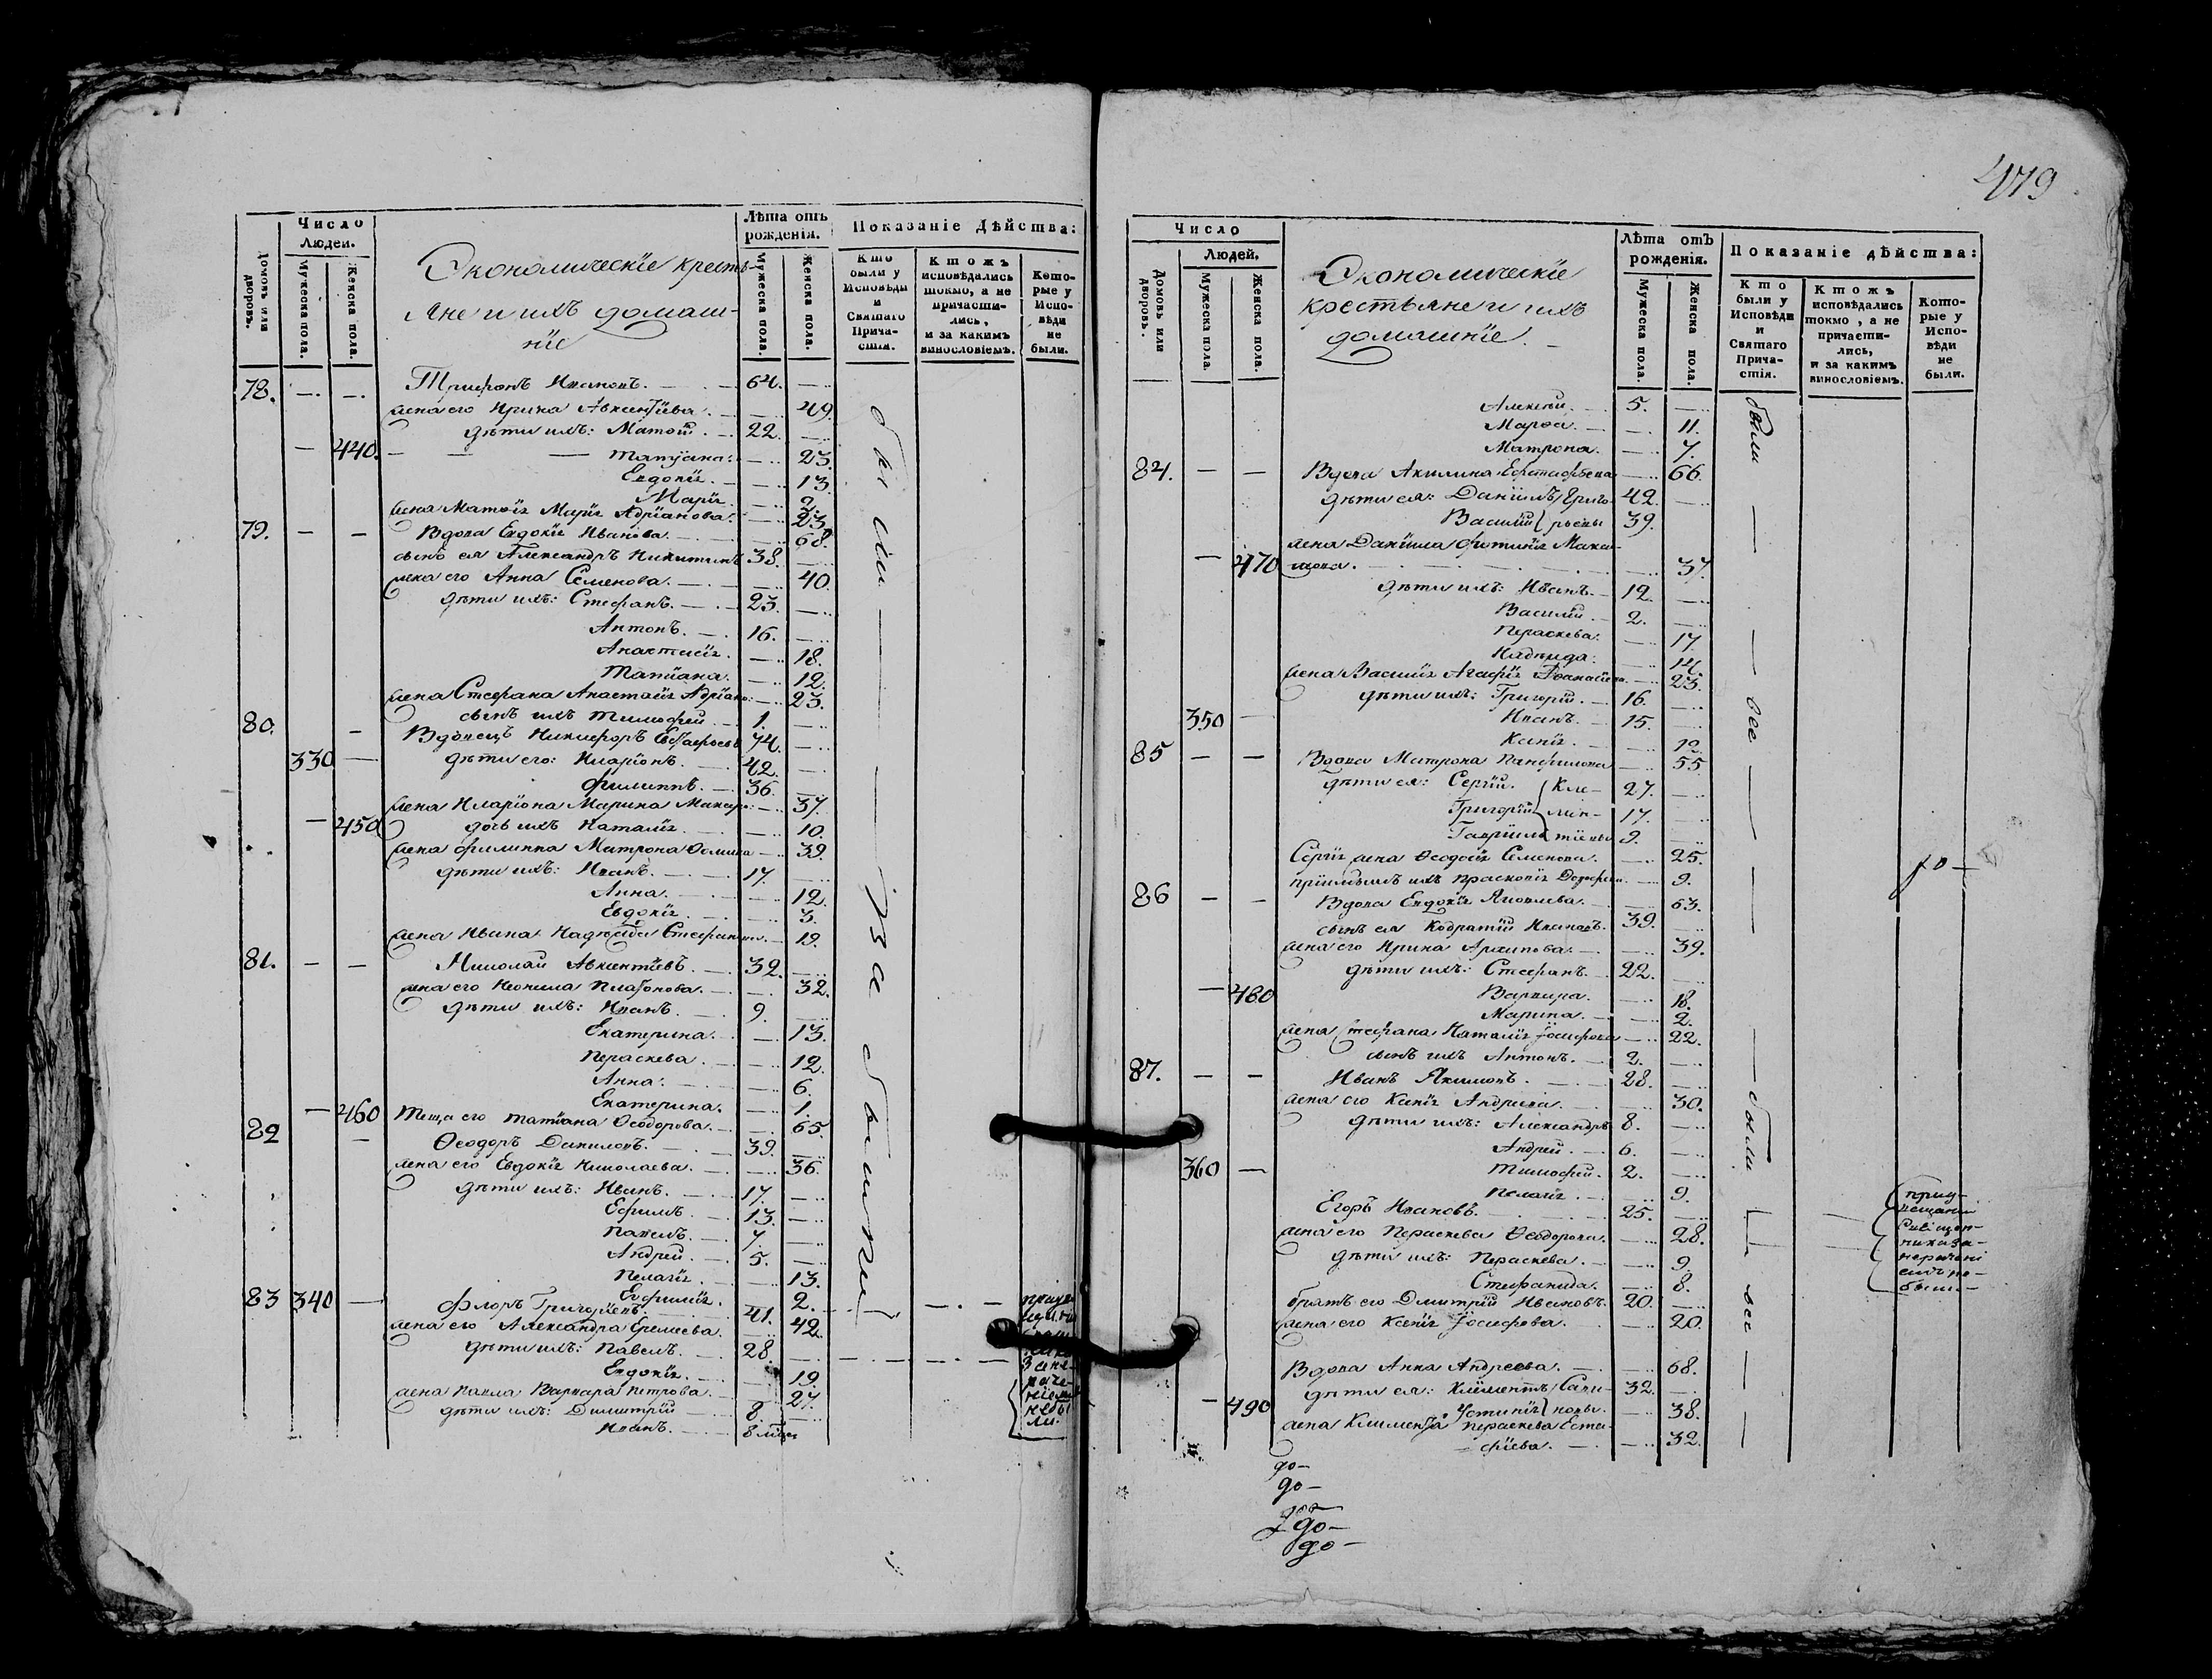 479
Число
Людей.
Домовъ или дворовъ.
Мужеска пола.
Женска пола.
Экономическіе кресть-
яне и ихъ домаш-
ніе
Лѣта отъ рожденія.
Мужеска пола.
Женска пола.
Показаніе Дѣйства:
Кто были у Исповѣди и Святаго Прича-стія.
Ктожъ исповѣдались токмо, а не причасти-лись, и за какимъ винословіемъ.
Кото-рые у Испо-вѣди не были.
78. Трифонъ Ивановъ. 64.
жена его Ирина Авксентіева 49.
дѣти ихъ: Матѳій. 22.
440. Татіана. 23.
Евдокія. 13.
Марія 2.
жена Матѳія Марія Адріанова. 23.
79. Вдова Евдокія Иванова. 68.
сынъ ея Александръ Никитинъ 38.
жена его Анна Семенова. 40.
дѣти ихъ: Стефанъ. 23.
Антонъ. 16.
Анастасія. 18.
Татіана. 12.
жена Стефана Анастасія Адріано: 23.
сынъ ихъ Тимофей 1.
80. Вдовецъ Никифоръ 74.
330 дѣти его: Иларіонъ. 42.
Филиппъ. 36.
жена Иларіона Марина Макар: 37.
450 дочь ихъ Наталія. 10.
жена Филиппа Матрона Ѳомина 39.
дѣти ихъ: Иванъ. 17.
Анна. 12.
Евдокія. 3.
жена Ивана Надежда 19.
81. Николай Авксентіевъ. 32.
жена его Неонила Платонова. 32.
дѣти ихъ: Иванъ. 9.
Екатерина. 13.
Параскева. 12.
Анна. 6.
Екатерина. 1.
460 теща его Татіана Ѳеодорова. 65.
82 Ѳеодоръ Даниловъ. 39.
жена его Евдокія Николаева. 36.
дѣти ихъ: Иванъ. 17.
Ефимъ. 13.
Павелъ. 7.
Андрей. 5.
Пелагія. 13.
Евфимія. 2.
83 340 Флоръ Григоріевъ. 41.
жена его Александра Еремеева. 42.
дѣти ихъ: Павелъ. 28.
Евдокія. 19.
жена Павла Варвара Петрова. 27.
дѣти ихъ: Димитрій 8.
Иванъ. 8
Число
Людей.
Домовъ или дворовъ.
Мужеска пола.
Женска пола.
Экономическіе
крестьяне и ихъ
домашніе.
Лѣта отъ рожденія.
Мужеска пола.
Женска пола.
Показаніе дѣйства:
Кто были у Исповѣди и Святаго Прича-стія.
Ктожъ исповѣдались токмо, а не причасти-лись, и за какимъ винословіемъ.
Кото-рые у Испо-вѣди не были.
Алексѣй. 5. были
Марѳа. 11.
Матрона. 7.
84. Вдова Акилина 66.
дѣти ея: Даніилъ Григо- 42.
Василій рьевы 39.
жена Даніила Фотинія Макси-
470 мова. 37.
дѣти ихъ: Иванъ. 12.
Василій. 2.
Пераскева. 17.
Надежда. 14.
жена Василія Агафія 23.
дѣти ихъ: Григорій. 16. все
350 Иванъ. 15.
Ксенія. 12.
85 Вдова Матрона Панфилова 55.
дѣти ея: Сергій. Кле- 27.
Григорій мен- 17.
Гавріилъ тіевы 9.
Сергія жена Ѳеодосія Семенова. 25.
пріимышъ ихъ Прасковія 9.
86 Вдова Евдокія Яковлева. 63.
сынъ ея Кодратій Ивановъ. 39.
жена его Ирина Архипова. 39.
дѣти ихъ: Стефанъ. 22.
480 Варвара. 18.
Марина. 2.
жена Стефана Наталія Іосифова 22.
сынъ ихъ Антонъ. 2.
87. Иванъ Якимовъ. 28.
жена его Ксенія Андреева. 30.
дѣти ихъ: Александръ 8. были
Андрей. 6.
360 Тимофей. 2.
Пелагія. 9.
Егоръ Ивановъ. 25.
жена его Пераскева Ѳеодорова. 28.
дѣти ихъ: Пераскева. 9.
Стефанида. 8.
братъ его Дмитрій Ивановъ. 20. все
жена его Ксенія Іосифова. 20.
Вдова Анна Андреева. 68.
дѣти ея: Климентъ Сави- 32.
490 Устинія новы. 38.
жена Климента Пераскева Еста-
фіева. 32.
до-
до-
до-
до-